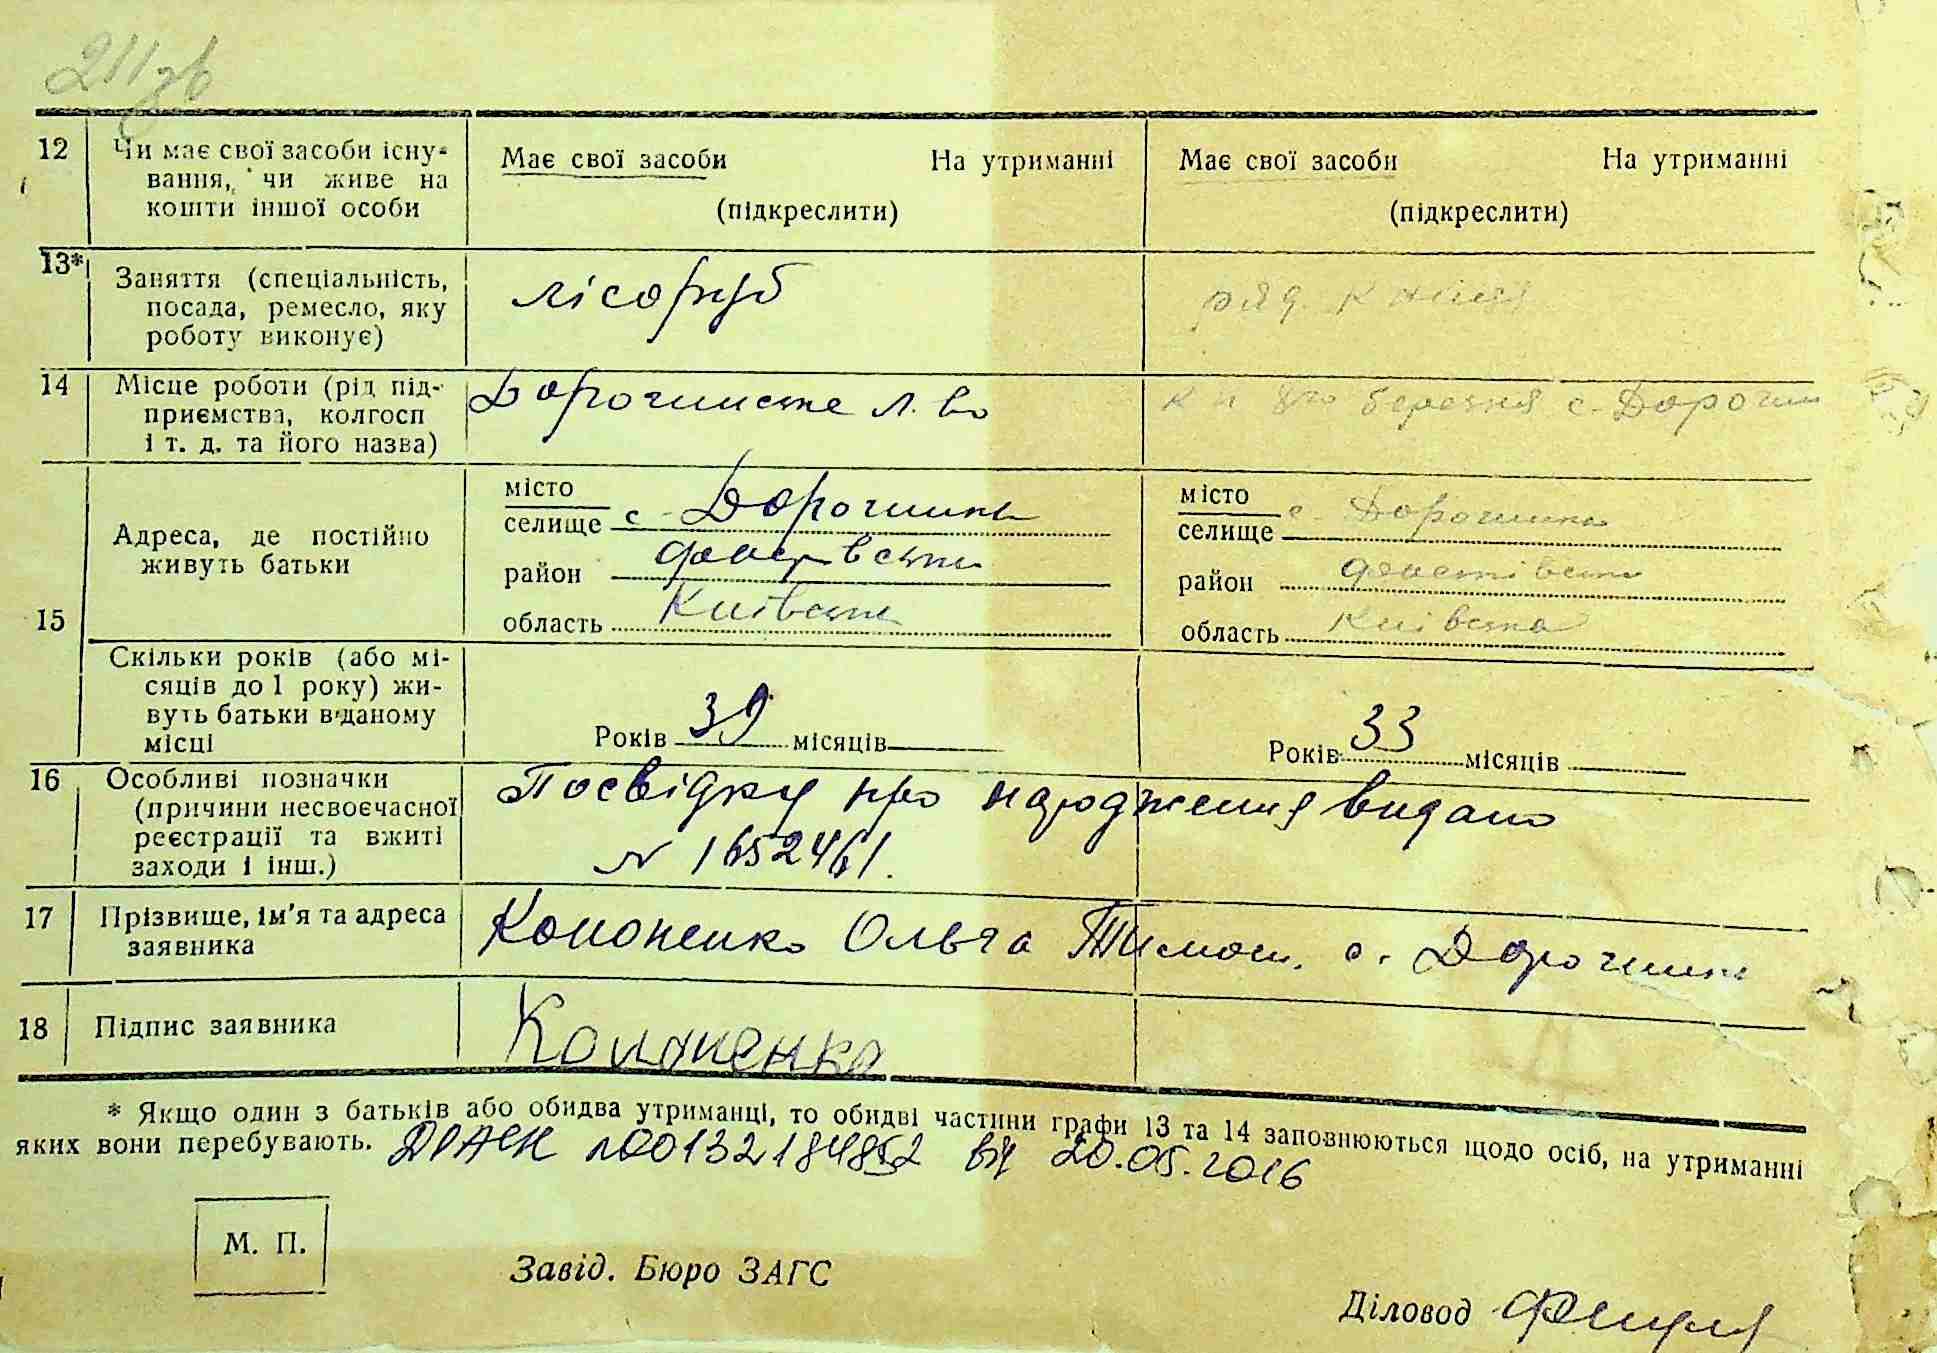 211зв
12 Чи має свої засоби існу-
вання, чи живе на
кошти іншої особи
Має свої засоби На утриманні
(підкреслити)
Має свої засоби На утриманні
(підкреслити)
13* Заняття (спеціальність,
посада, ремесло, яку
роботу виконує)
лісоруб
ряд.
14 Місце роботи (рід під-
приємства, колгосп
і т. д. та його назва)
Дорогинське л-во
березня с. Дорогин
15 Адреса, де постійно
живуть батьки
місто
селище с. Дорогинка
район
область Київська
місто
селище с. Дорогинка
район Фастівськи
область Київська
Скільки років (або мі-
сяців до 1 року) жи-
вуть батьки в даному
місці
Років 39 місяців
Років 33 місяців
16 Особливі позначки
(причини несвоєчасної
реєстрації та вжиті
заходи і інш.)
Посвідку про народження видано
№ 1652461.
17 Прізвище, ім'я та адреса
заявника
Кононенко Ольга Тимош. с. Дорогинка
18 Підпис заявника
Кононенко
* Якщо один з батьків або обидва утриманці, то обидві частини графи 13 та 14 заповнюються щодо осіб, на утриманні
яких вони перебувають. ДРАСН №00132184852 від 20.05.2016
М. П.
Завід. Бюро ЗАГС
Діловод